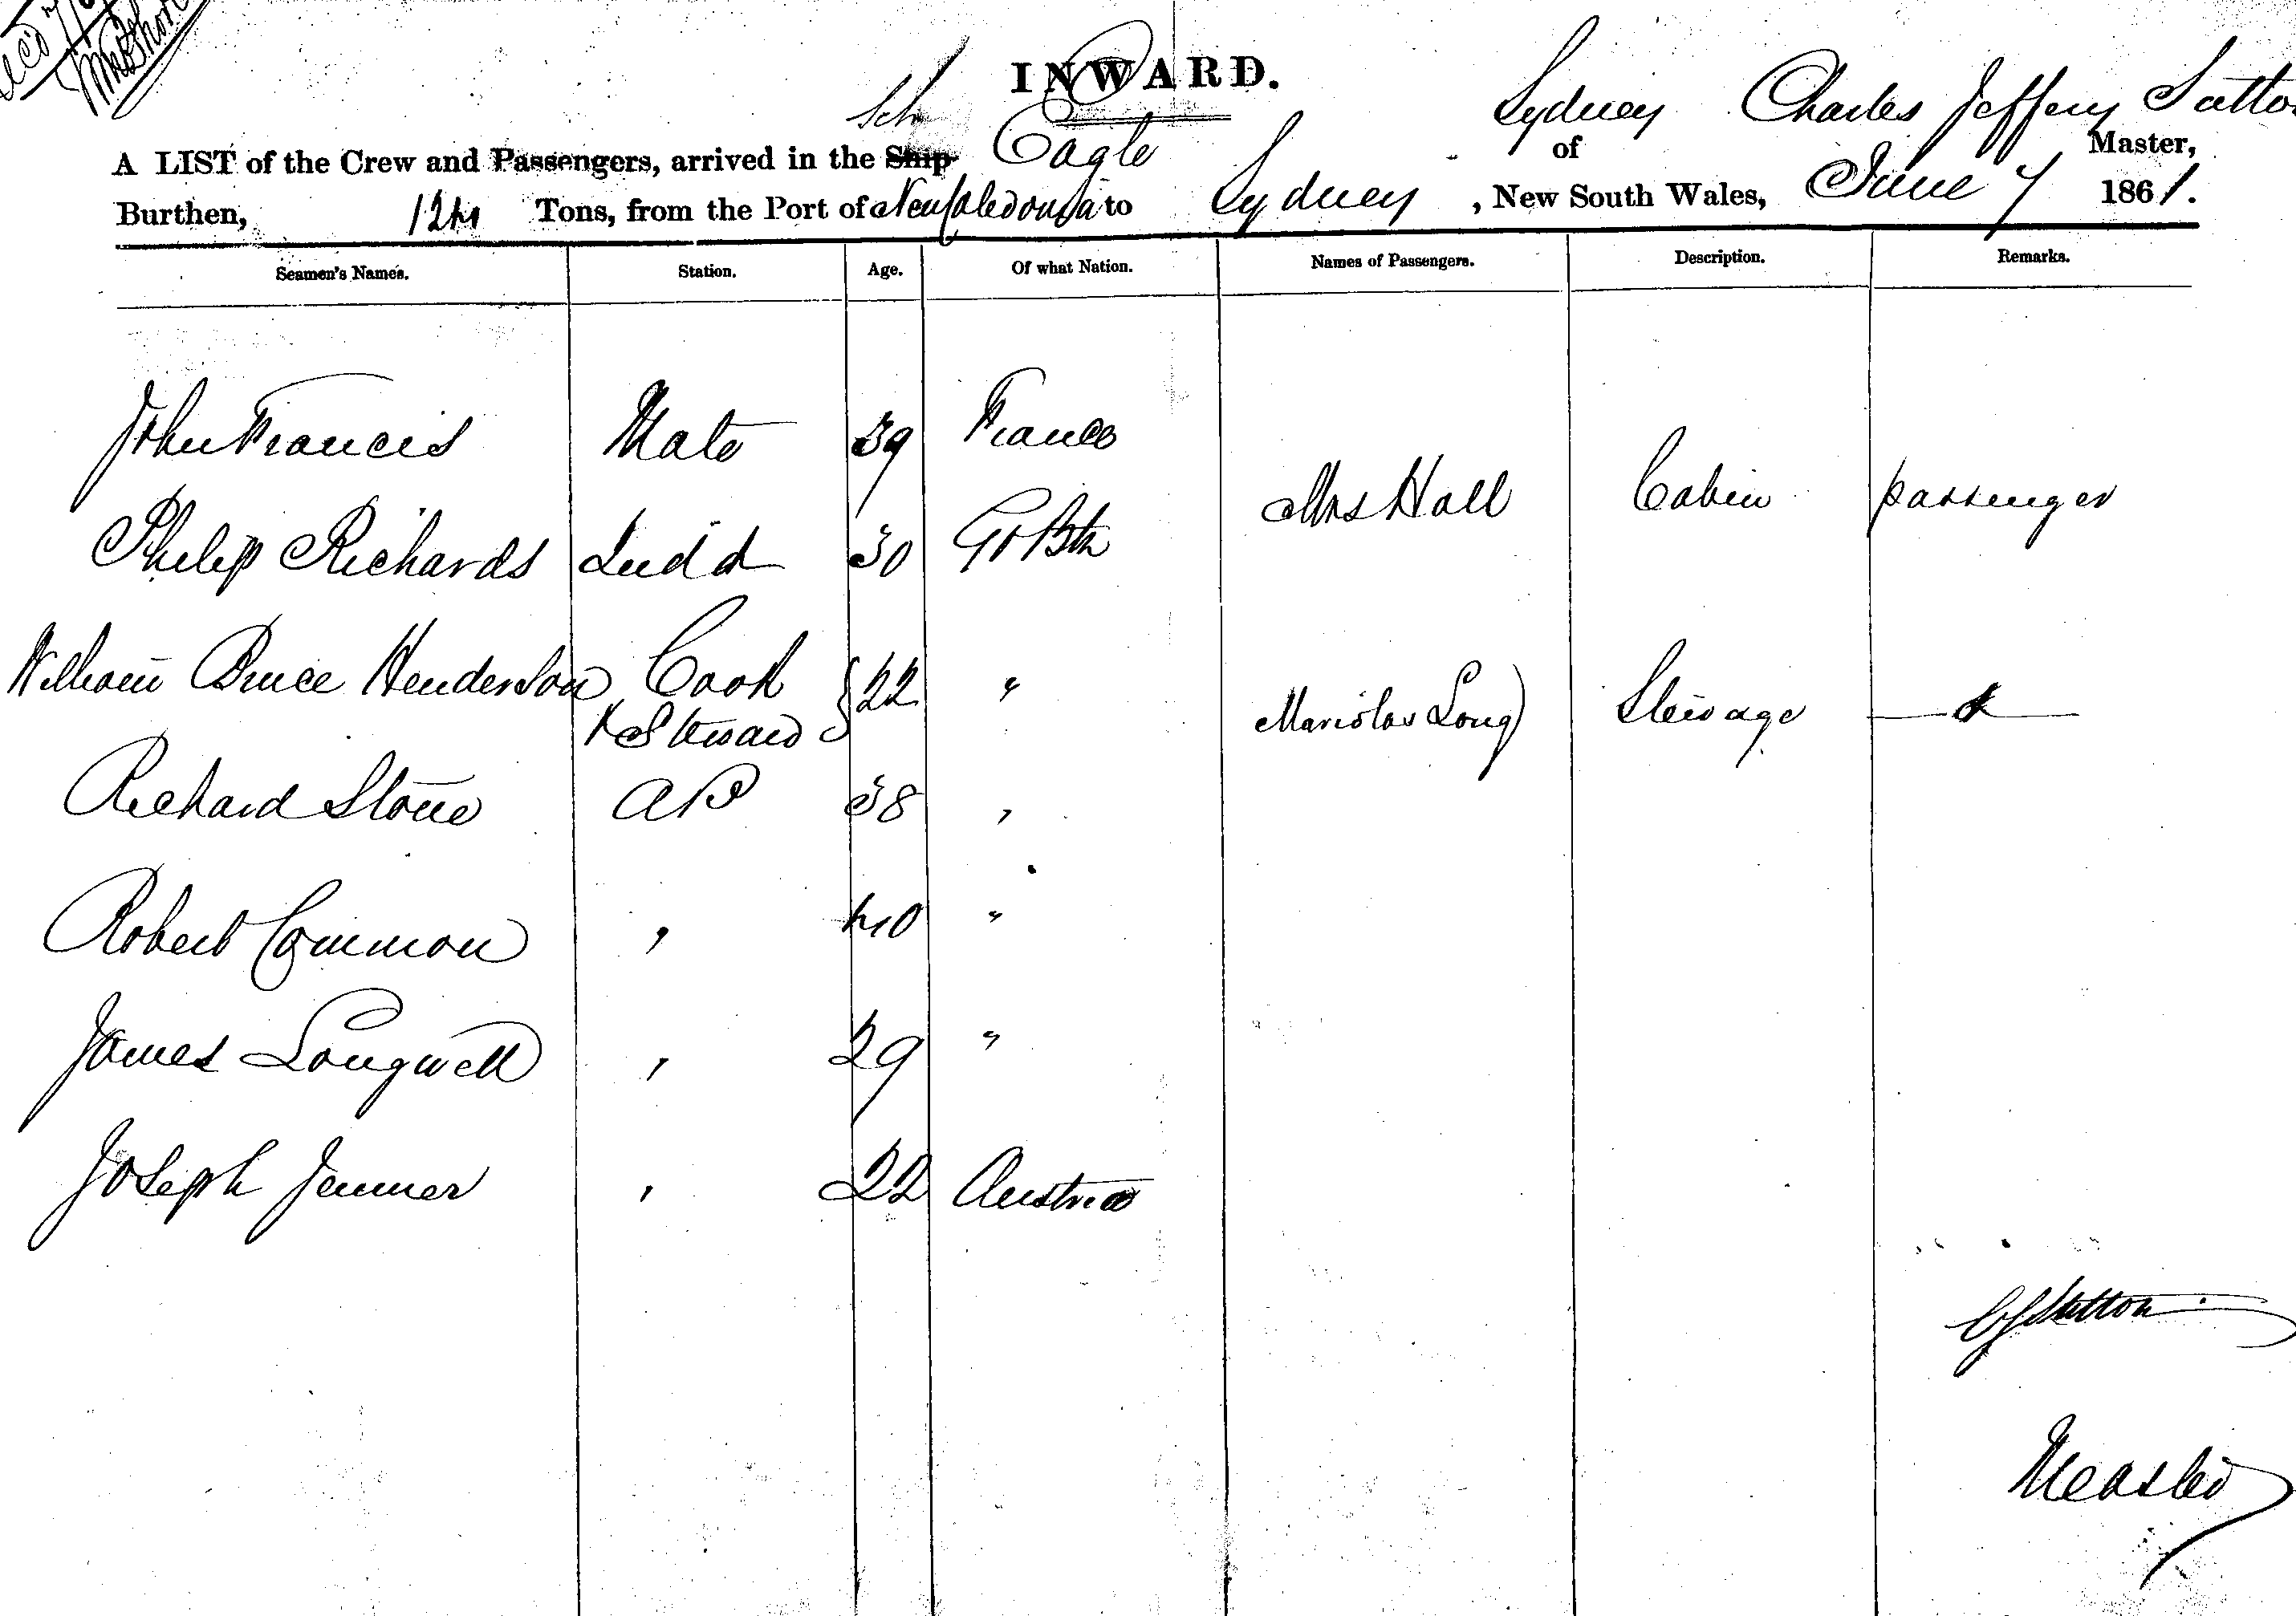 INWARD.
Sch Eagle of Sydney Charles Jeffery Sutton
A LIST of the Crew and Passengers, arrived in the Ship Master,
Burthen, 124 Tons, from the Port of New Caledonia to Sydney, New South Wales, June 7 1861.
Seamen's Names. Station. Age. Of what Nation. Names of Passengers. Description. Remarks.
John Francis Mate 39 France
Mrs Hall Cabin passenger
Philip Richards 30 Gt Btn
William Bruce Henderson Cook 22 "
& Steward
Long Steerage
Richard Stone AB 38 "
Robert Common " 40 "
James Longwell " 29 "
Joseph Jenner " 22 Austria
CJ Sutton
Master